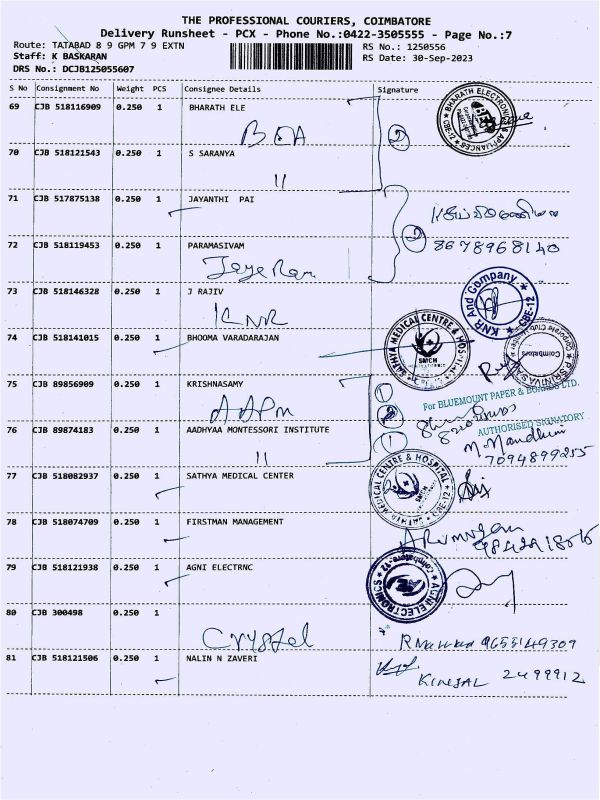 THE PROFESSIONAL COURIERS, COIMBATORE
Delivery Runsheet - PCX - Phone No.:0422-3505555 - Page No.:7
Route: TATABAD 8 9 GPM 7 9 EXTN
RS No.: 1250556
Staff: K BASKARAN
RS Date: 30-Sep-2023
DRS No.: DCJB125055607
S No Consignment No Weight PCS Consignee Details Signature
69 CJB 518116909 0.250 1 BHARATH ELE
BEA
BHARATH ELECTRONICS & APPLIANCES
70 CJB 518121543 0.250 1 S SARANYA
11
71 CJB 517875138 0.250 1 JAYANTHI PAI
72 CJB 518119453 0.250 1 PARAMASIVAM
8678968140
Jaye Ram
73 CJB 518146328 0.250 1 J RAJIV
KNR
KNR And Company CBE-12
74 CJB 518141015 0.250 1 BHOOMA VARADARAJAN
SATHYA MEDICAL CENTRE & HOSPITAL
SMCH
Coimbatore
75 CJB 89856909 0.250 1 KRISHNASAMY
AAPM
For BLUEMOUNT PAPER & BOARDS LTD.
AUTHORISED SIGNATORY
76 CJB 89874183 0.250 1 AADHYAA MONTESSORI INSTITUTE
11
M. Nandhini
7094899255
77 CJB 518082937 0.250 1 SATHYA MEDICAL CENTER
SATHYA MEDICAL CENTRE & HOSPITAL CBE-12
SMCH
78 CJB 518074709 0.250 1 FIRSTMAN MANAGEMENT
Arumugam
79 CJB 518121938 0.250 1 AGNI ELECTRNC
AGNI ELECTRONICS Coimbatore-12
80 CJB 300498 0.250 1
Crystal
9655149309
81 CJB 518121506 0.250 1 NALIN N ZAVERI
KINJAL 2499912